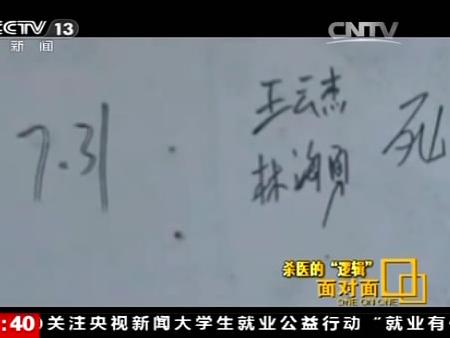 CCTV 13
新闻
CNTV
7.31
王云杰
林海勇
死
杀医的“逻辑”
面对面
ONE ON ONE
:40
关注央视新闻大学生就业公益行动 “就业有